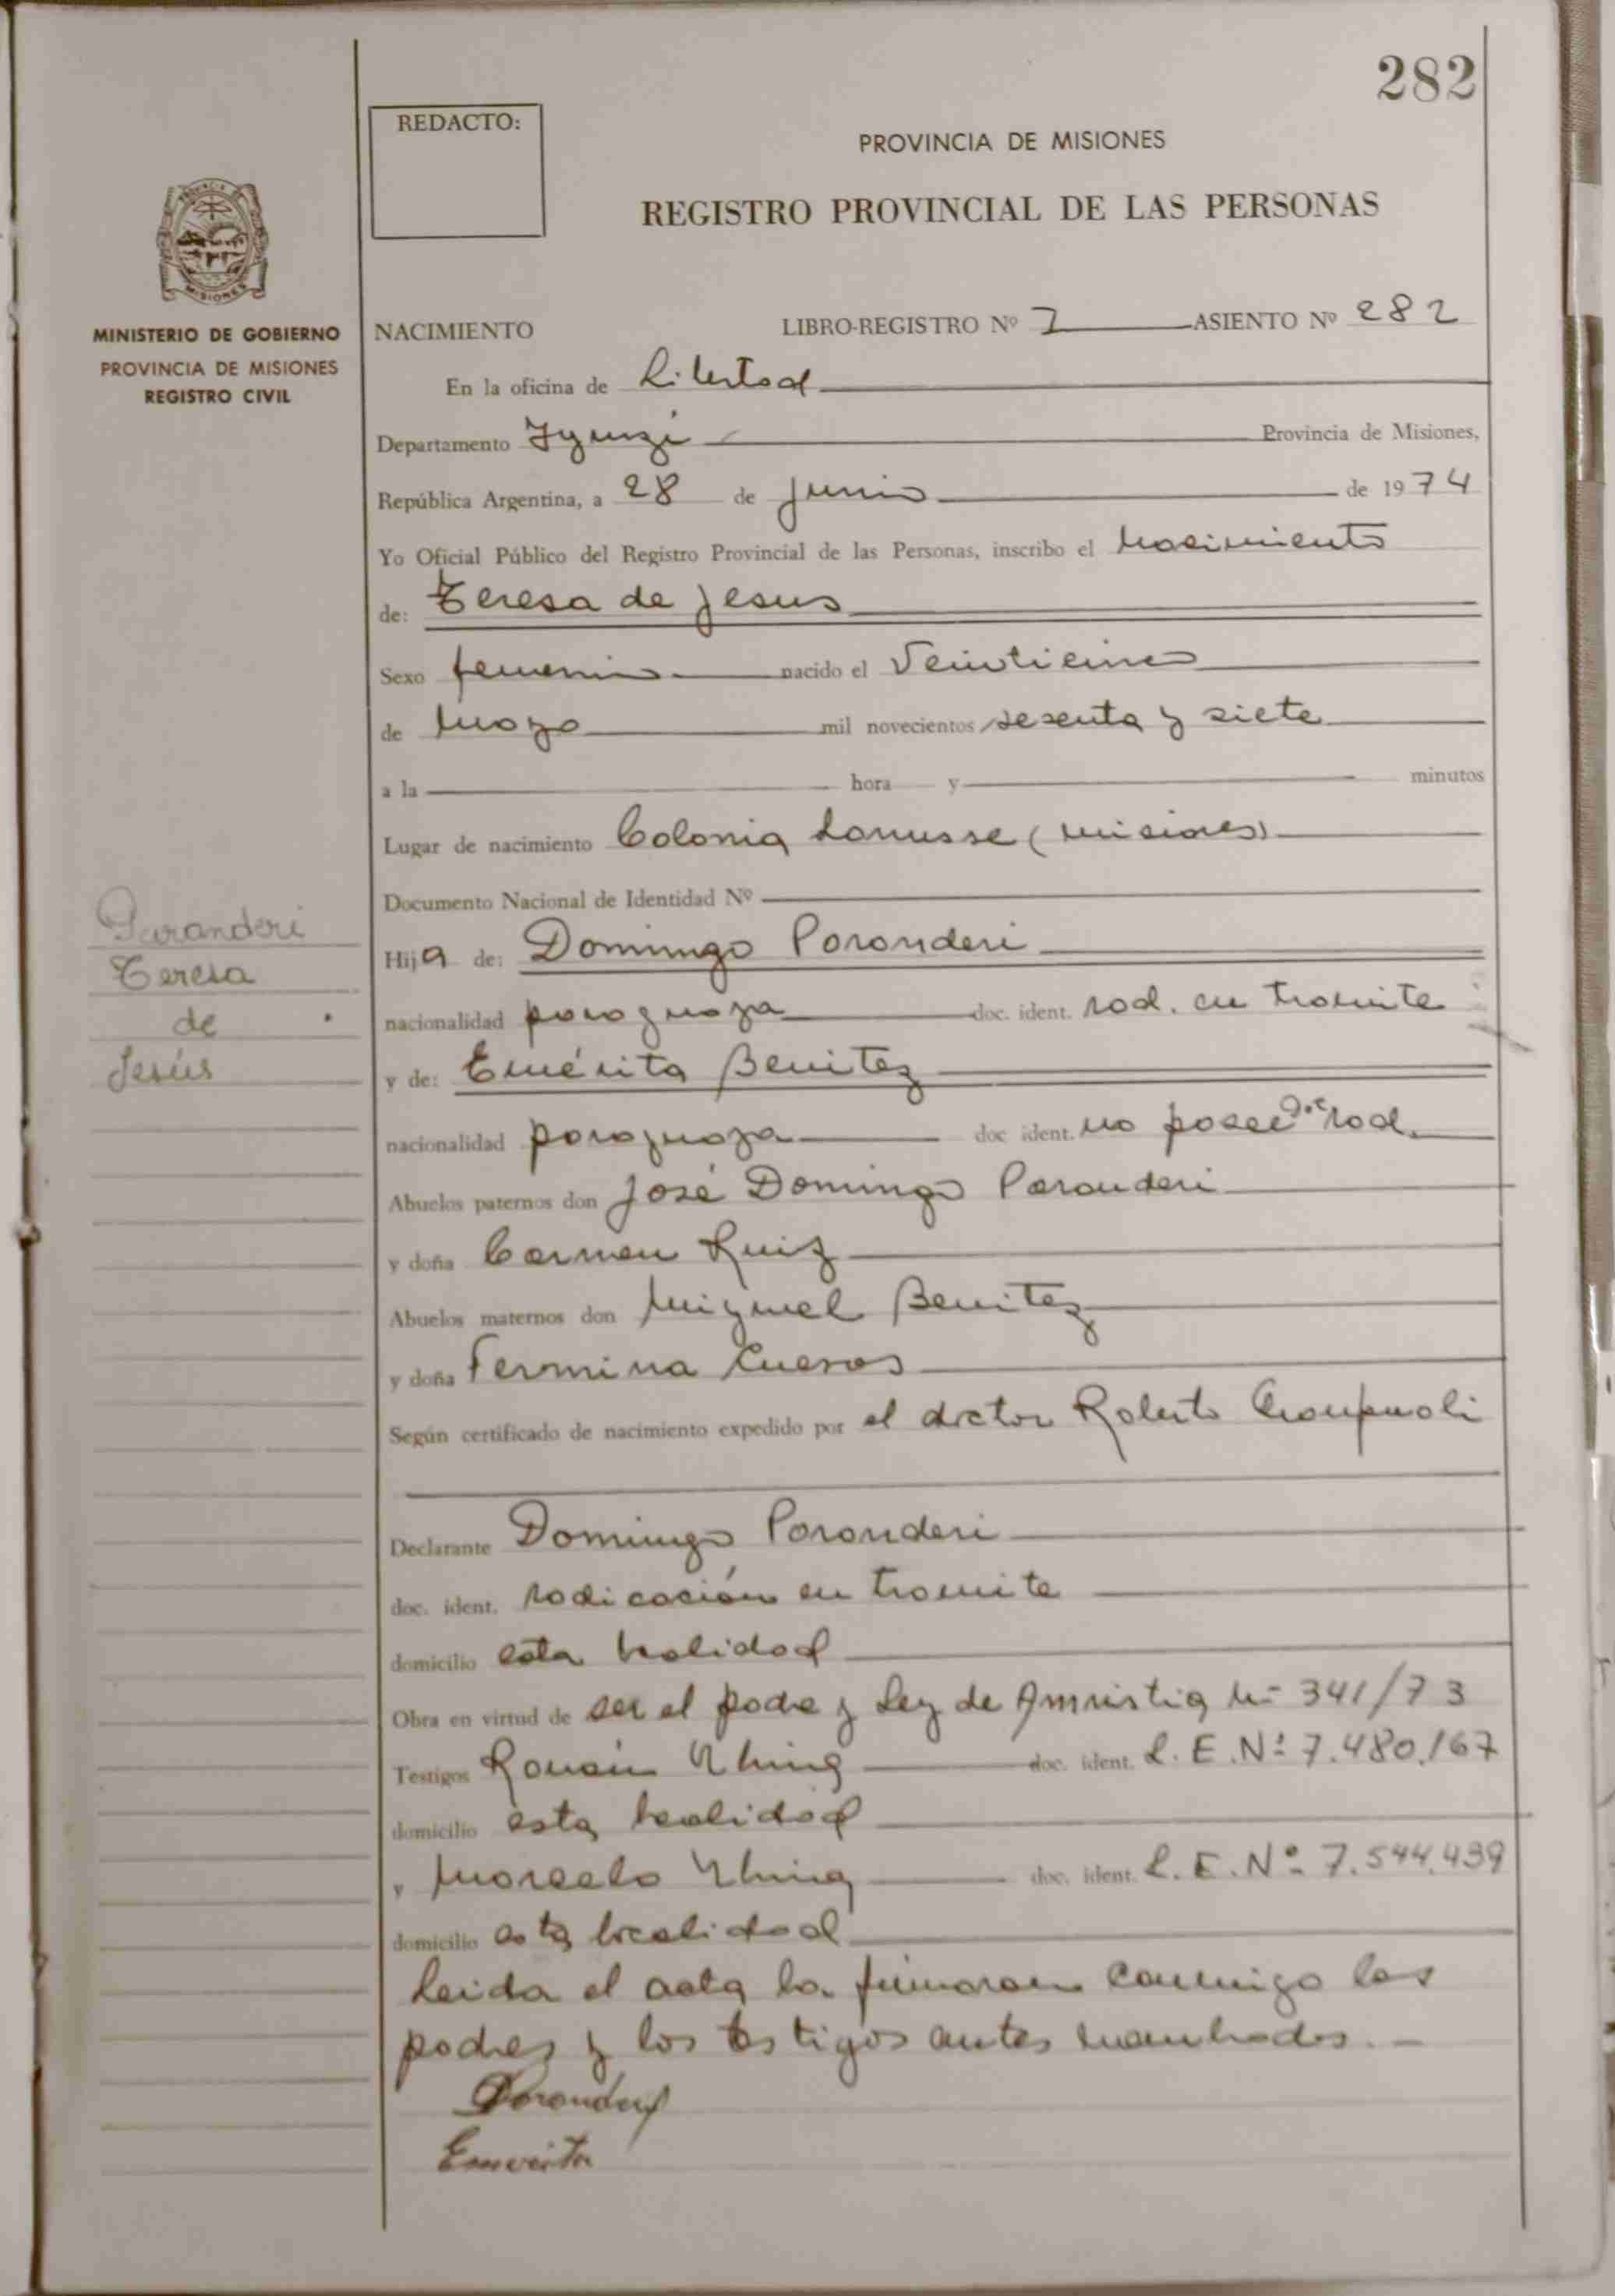 282
REDACTO:
PROVINCIA DE MISIONES
REGISTRO PROVINCIAL DE LAS PERSONAS
MISIONES
MINISTERIO DE GOBIERNO
PROVINCIA DE MISIONES
REGISTRO CIVIL
NACIMIENTO LIBRO-REGISTRO Nº ASIENTO Nº 282
En la oficina de Libertad
Departamento Provincia de Misiones,
República Argentina, a 28 de junio de 1974
Yo Oficial Público del Registro Provincial de las Personas, inscribo el nacimiento
de: Teresa de Jesus
Sexo femenino nacido el
de mayo mil novecientos sesenta y siete
a la hora y minutos
Lugar de nacimiento Colonia Lanusse (misiones)
Documento Nacional de Identidad Nº
Paranderi
Teresa
de
Jesús
Hija de: Domingo Paranderi
nacionalidad paraguaya doc. ident. rad. en tramite
y de: Emérita Benitez
nacionalidad paraguaya doc ident. no posee rad.
Abuelos paternos don José Domingo Paranderi
y doña Carmen Ruiz
Abuelos maternos don Miguel Benitez
y doña Fermina Cuevas
Según certificado de nacimiento expedido por el doctor Roberto
Declarante Domingo Paranderi
doc. ident. radicación en tramite
domicilio esta localidad
Obra en virtud de ser el padre y Ley de Amnistia Nº 341/73
Testigos Román doc. ident. L. E. Nº 7.480.167
domicilio esta localidad
y Marcelo doc. ident. L. E. Nº 7.544.439
domicilio esta localidad
Leida el acta la firmaron conmigo los
padres y los testigos antes nombrados.-
Emerita